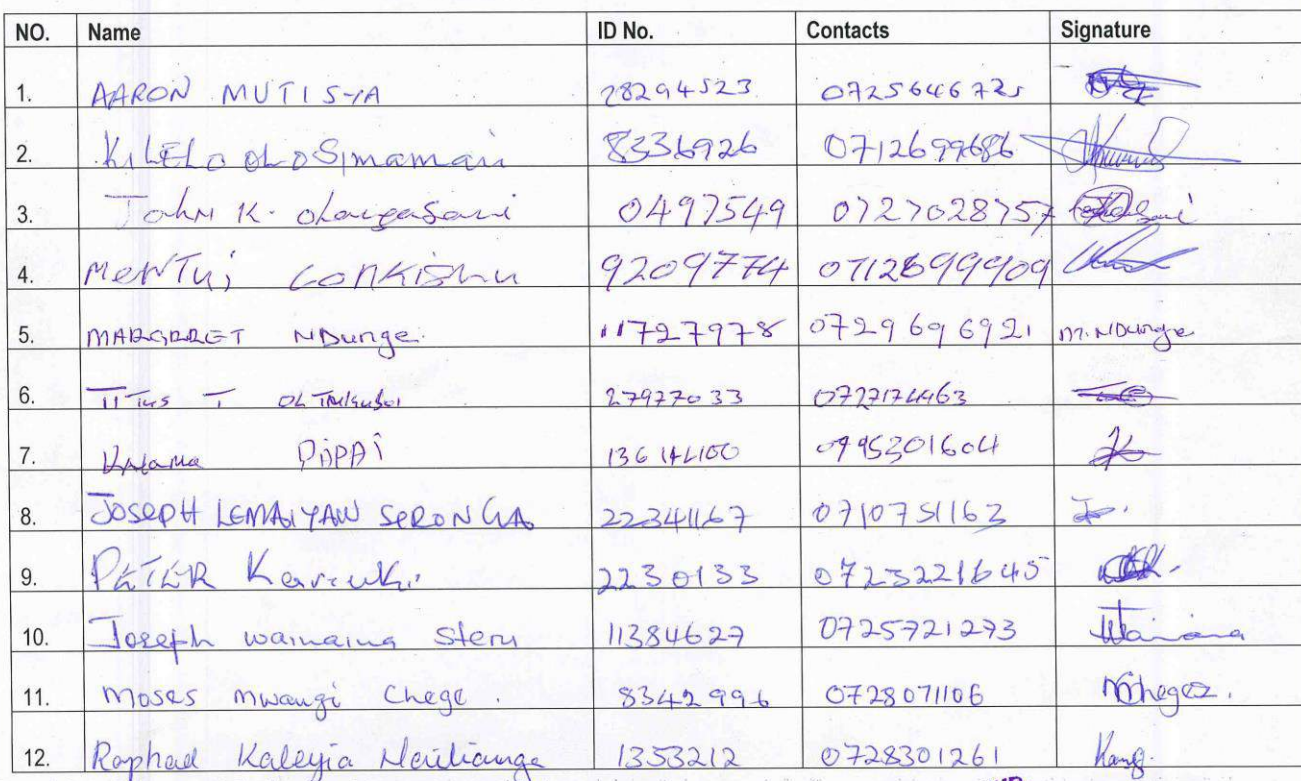 NO. Name ID No. Contacts Signature
1. AARON MUTISYA 28294523 0725646725
2. KILELO OLOSimamani 8336926 0712699686
3. John K. 0497549 0727028757
4. MENTUi LONKIShu 9209774 0712699909
5. MARGARET NDunge. 11727978 0729696921 M.NDunge
6. TITus T 27977033 0727174463
7. PAPPAi 0795301604
8. JOSEPH LEMAIYAN SERONGA 22341167 0710751163 J.
9. PETER Kariuki 2230133 0723221645
10. Joseph wainaina Steru 11384627 0725721273 Wainaina
11. Moses Mwangi Chege. 8342996 0728071106
12. Raphael Kaleyia 1353212 0728301261 Kang.